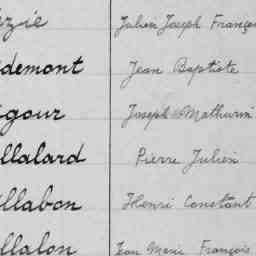 ézie Julien Joseph Françoi
demont Jean Baptiste
igour Joseph Mathurin
llalard Pierre Julien
illabon Henri Constant
llalon Jean Marie François